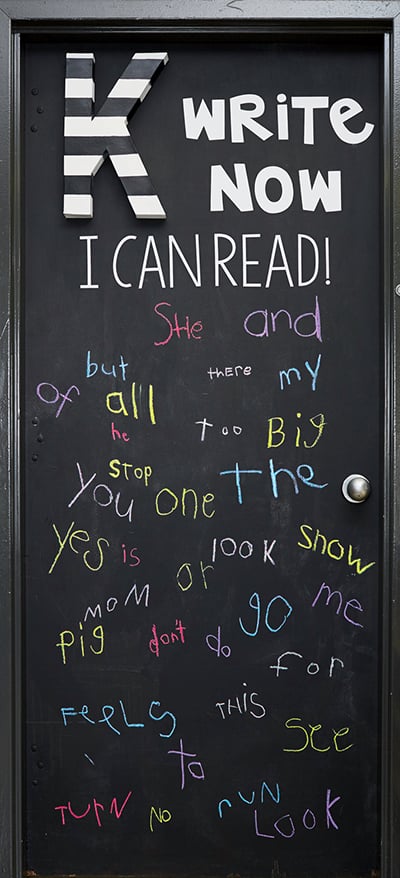 K WRITE
NOW
I CAN READ!
SHe and
but THERE my
of all
he Too Big
STOP The
You one
yes is look Snow
or
MoM go me
pig don't do
for
FeeLS THIS
See
To
TURN No run
Look